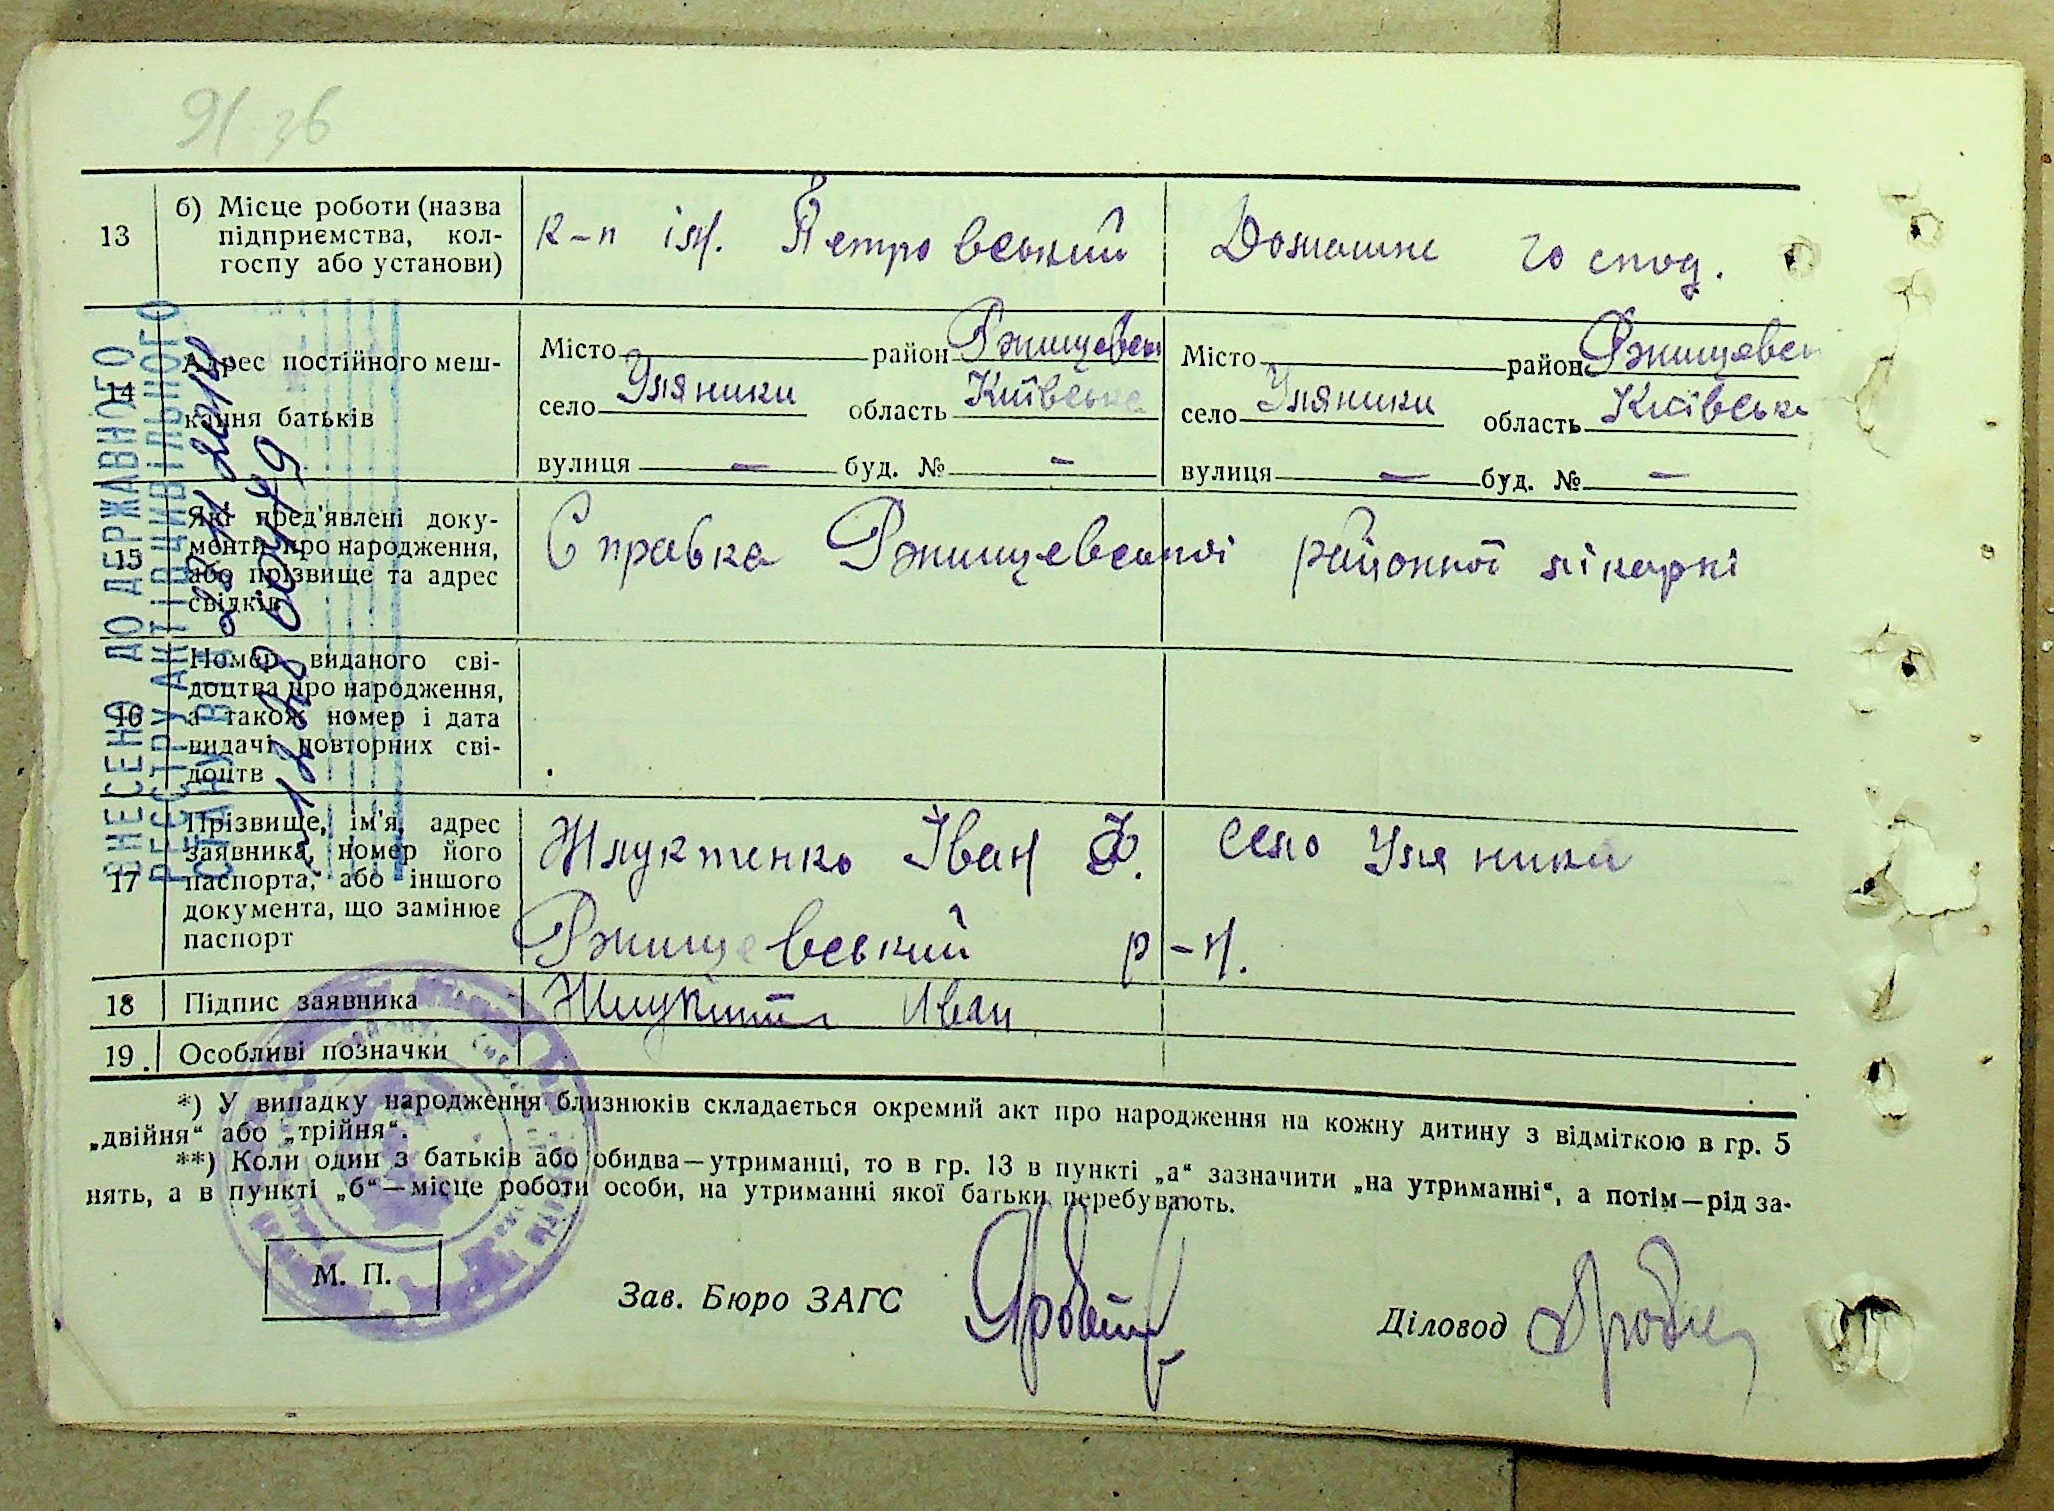 91 зв
13 б) Місце роботи (назва підприємства, кол-госпу або установи) к-п ім. Петровський Домашнє господ.
14 Адрес постійного меш-кання батьків
Місто — район Ржищевськ Місто — район Ржищевськ
село Уляники область Київська село Уляники область Київська
вулиця — буд. № — вулиця — буд. № —
15 Які пред'явлені доку-менти про народження, або прізвище та адрес свідків Справка Ржищевської районної лікарні
16 Номер виданого сві-доцтва про народження, а також номер і дата видачі повторних сві-доцтв
17 Прізвище, ім'я, адрес заявника, номер його паспорта, або іншого документа, що замінює паспорт
Жлуктенко Іван Ф. село Уляники
Ржищевський р-н.
18 Підпис заявника Иван
19. Особливі позначки
ВНЕСЕНО ДО ДЕРЖАВНОГО
РЕЄСТРУ АКТІВ ЦИВІЛЬНОГО
СТАНУ
*) У випадку народження близнюків складається окремий акт про народження на кожну дитину з відміткою в гр. 5
„двійня“ або „трійня“.
**) Коли один з батьків або обидва—утриманці, то в гр. 13 в пункті „а“ зазначити „на утриманні“, а потім—рід за-
нять, а в пункті „б“—місце роботи особи, на утриманні якої батьки перебувають.
М. П.
Зав. Бюро ЗАГС
Діловод